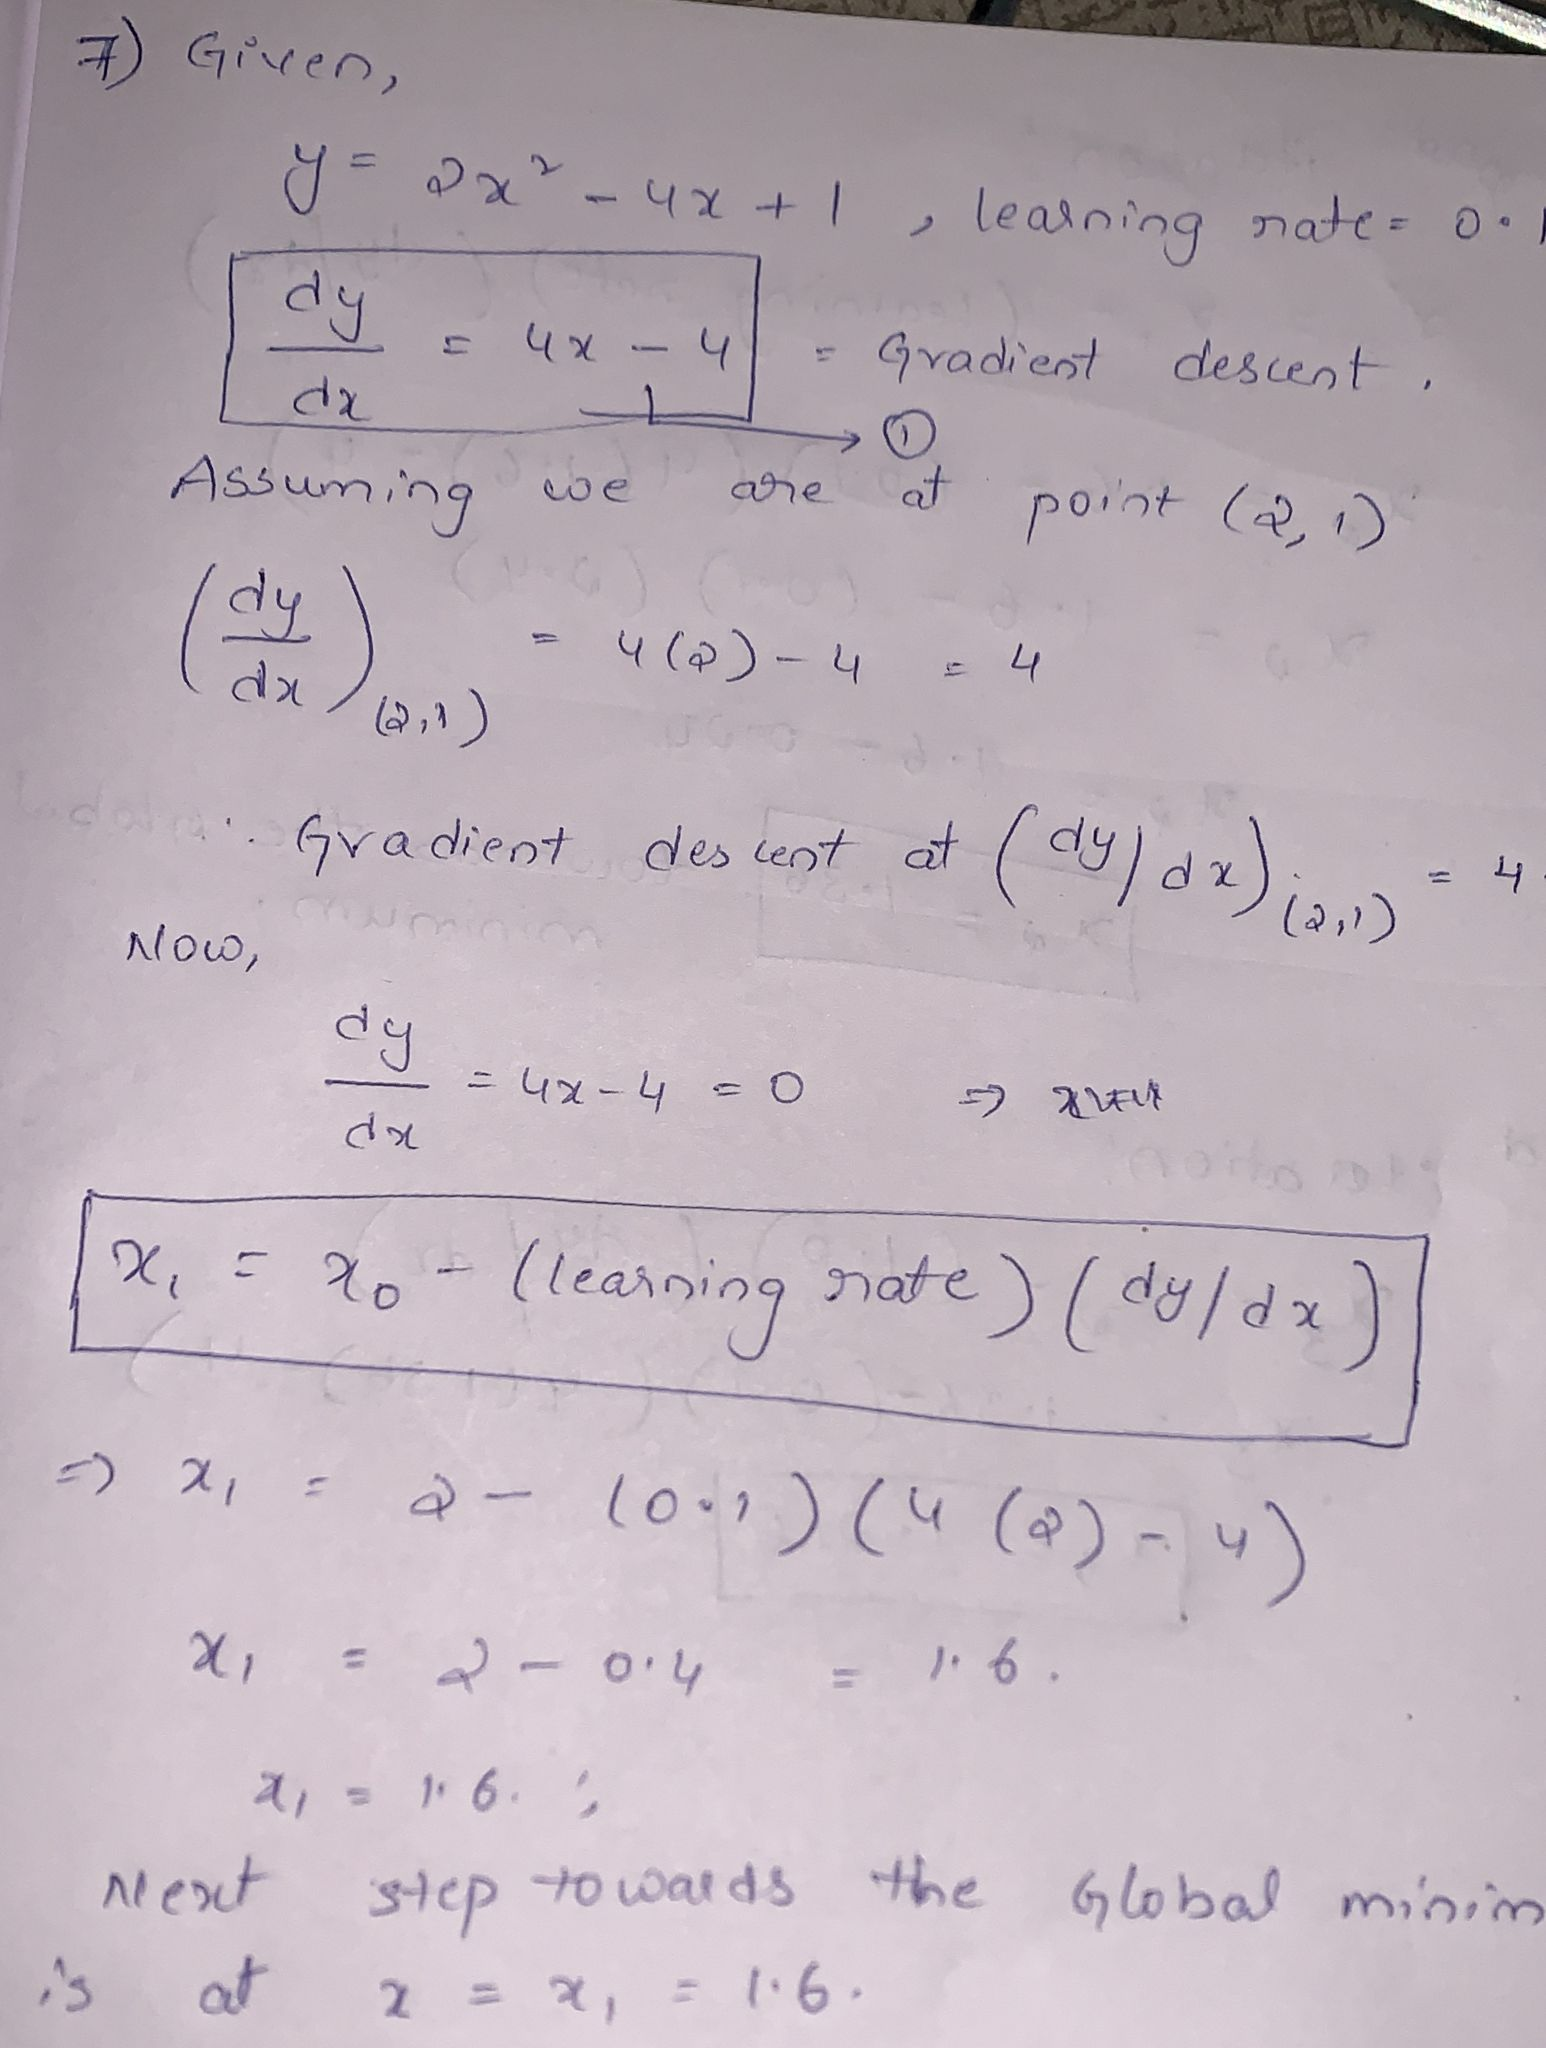 7) Given,
y = 2x² - 4x + 1 , learning rate = 0.1
dy/dx = 4x - 4 = Gradient descent .
①
Assuming we are at point (2, 1)
(dy/dx)(2,1) = 4(2) - 4 = 4
∴ Gradient descent at (dy/dx)(2,1) = 4.
Now,
dy/dx = 4x - 4 = 0 ⇒
x₁ = x₀ - (learning rate) (dy/dx)
⇒ x₁ = 2 - (0.1) (4 (2) - 4)
x₁ = 2 - 0.4 = 1.6.
x₁ = 1.6. ;
Next step towards the Global minim
is at x = x₁ = 1.6.